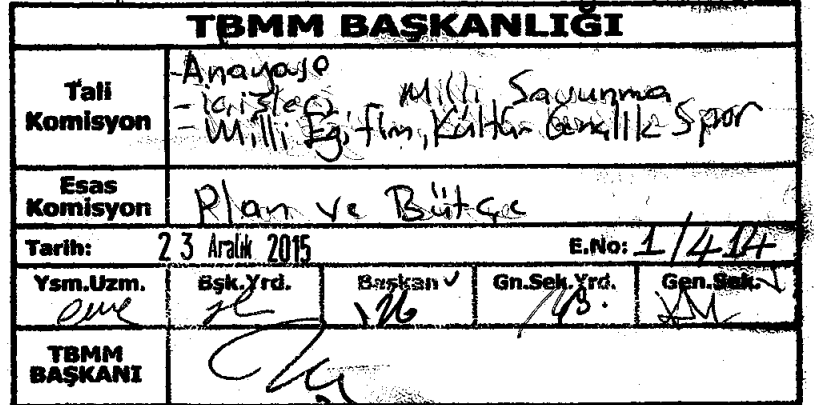 TBMM BAŞKANLIĞI
Tali Komisyon
-Anayasa
- içişleri Milli Savunma
- Milli Eğitim, Kültür Gençlik Spor
Esas Komisyon
Plan ve Bütçe
Tarih: 23 Aralık 2015 E.No: 1/414
Ysm.Uzm. Bşk.Yrd. Başkan Gn.Sek.Yrd. Gen.Sek.
TBMM BAŞKANI